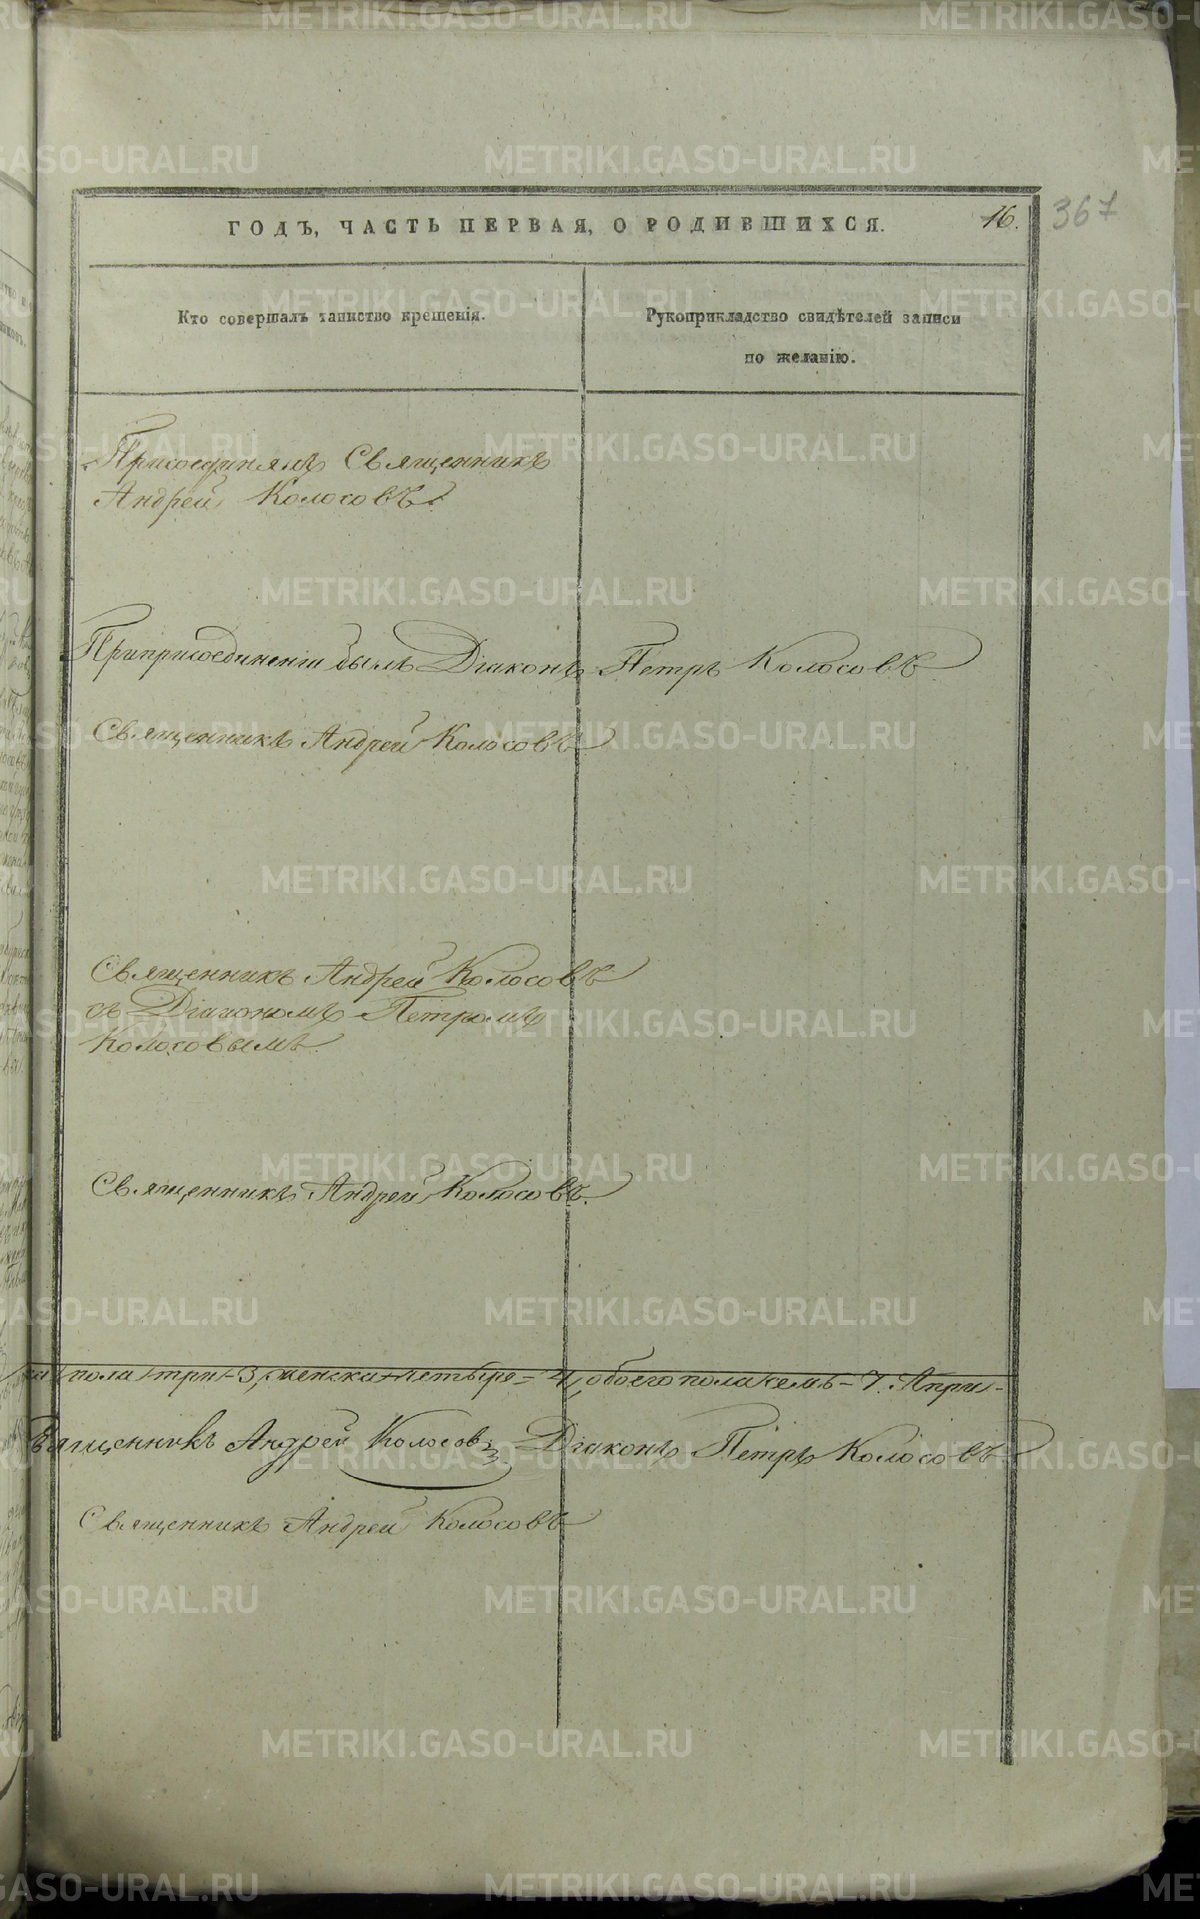 ГОДЪ, ЧАСТЬ ПЕРВАЯ, О РОДИВШИХСЯ. 16. 367
Кто совершалъ таинство крещенія.
Рукоприкладство свидѣтелей записи
по желанію.
Присоединялъ Священникъ
Андрей Колосовъ.
Приприсоединеніи былъ Діаконъ Петръ Колосовъ
Священникъ Андрей Колосовъ
Священникъ Андрей Колосовъ
съ Діакономъ Петромъ
Колосовымъ.
Священникъ Андрей Колосовъ.
пола три-3, женска четыре-4, обоего пола семь-7. Апри-
Священникъ Андрей Колосовъ Діаконъ Петръ Колосовъ
Священникъ Андрей Колосовъ
METRIKI.GASO-URAL.RU